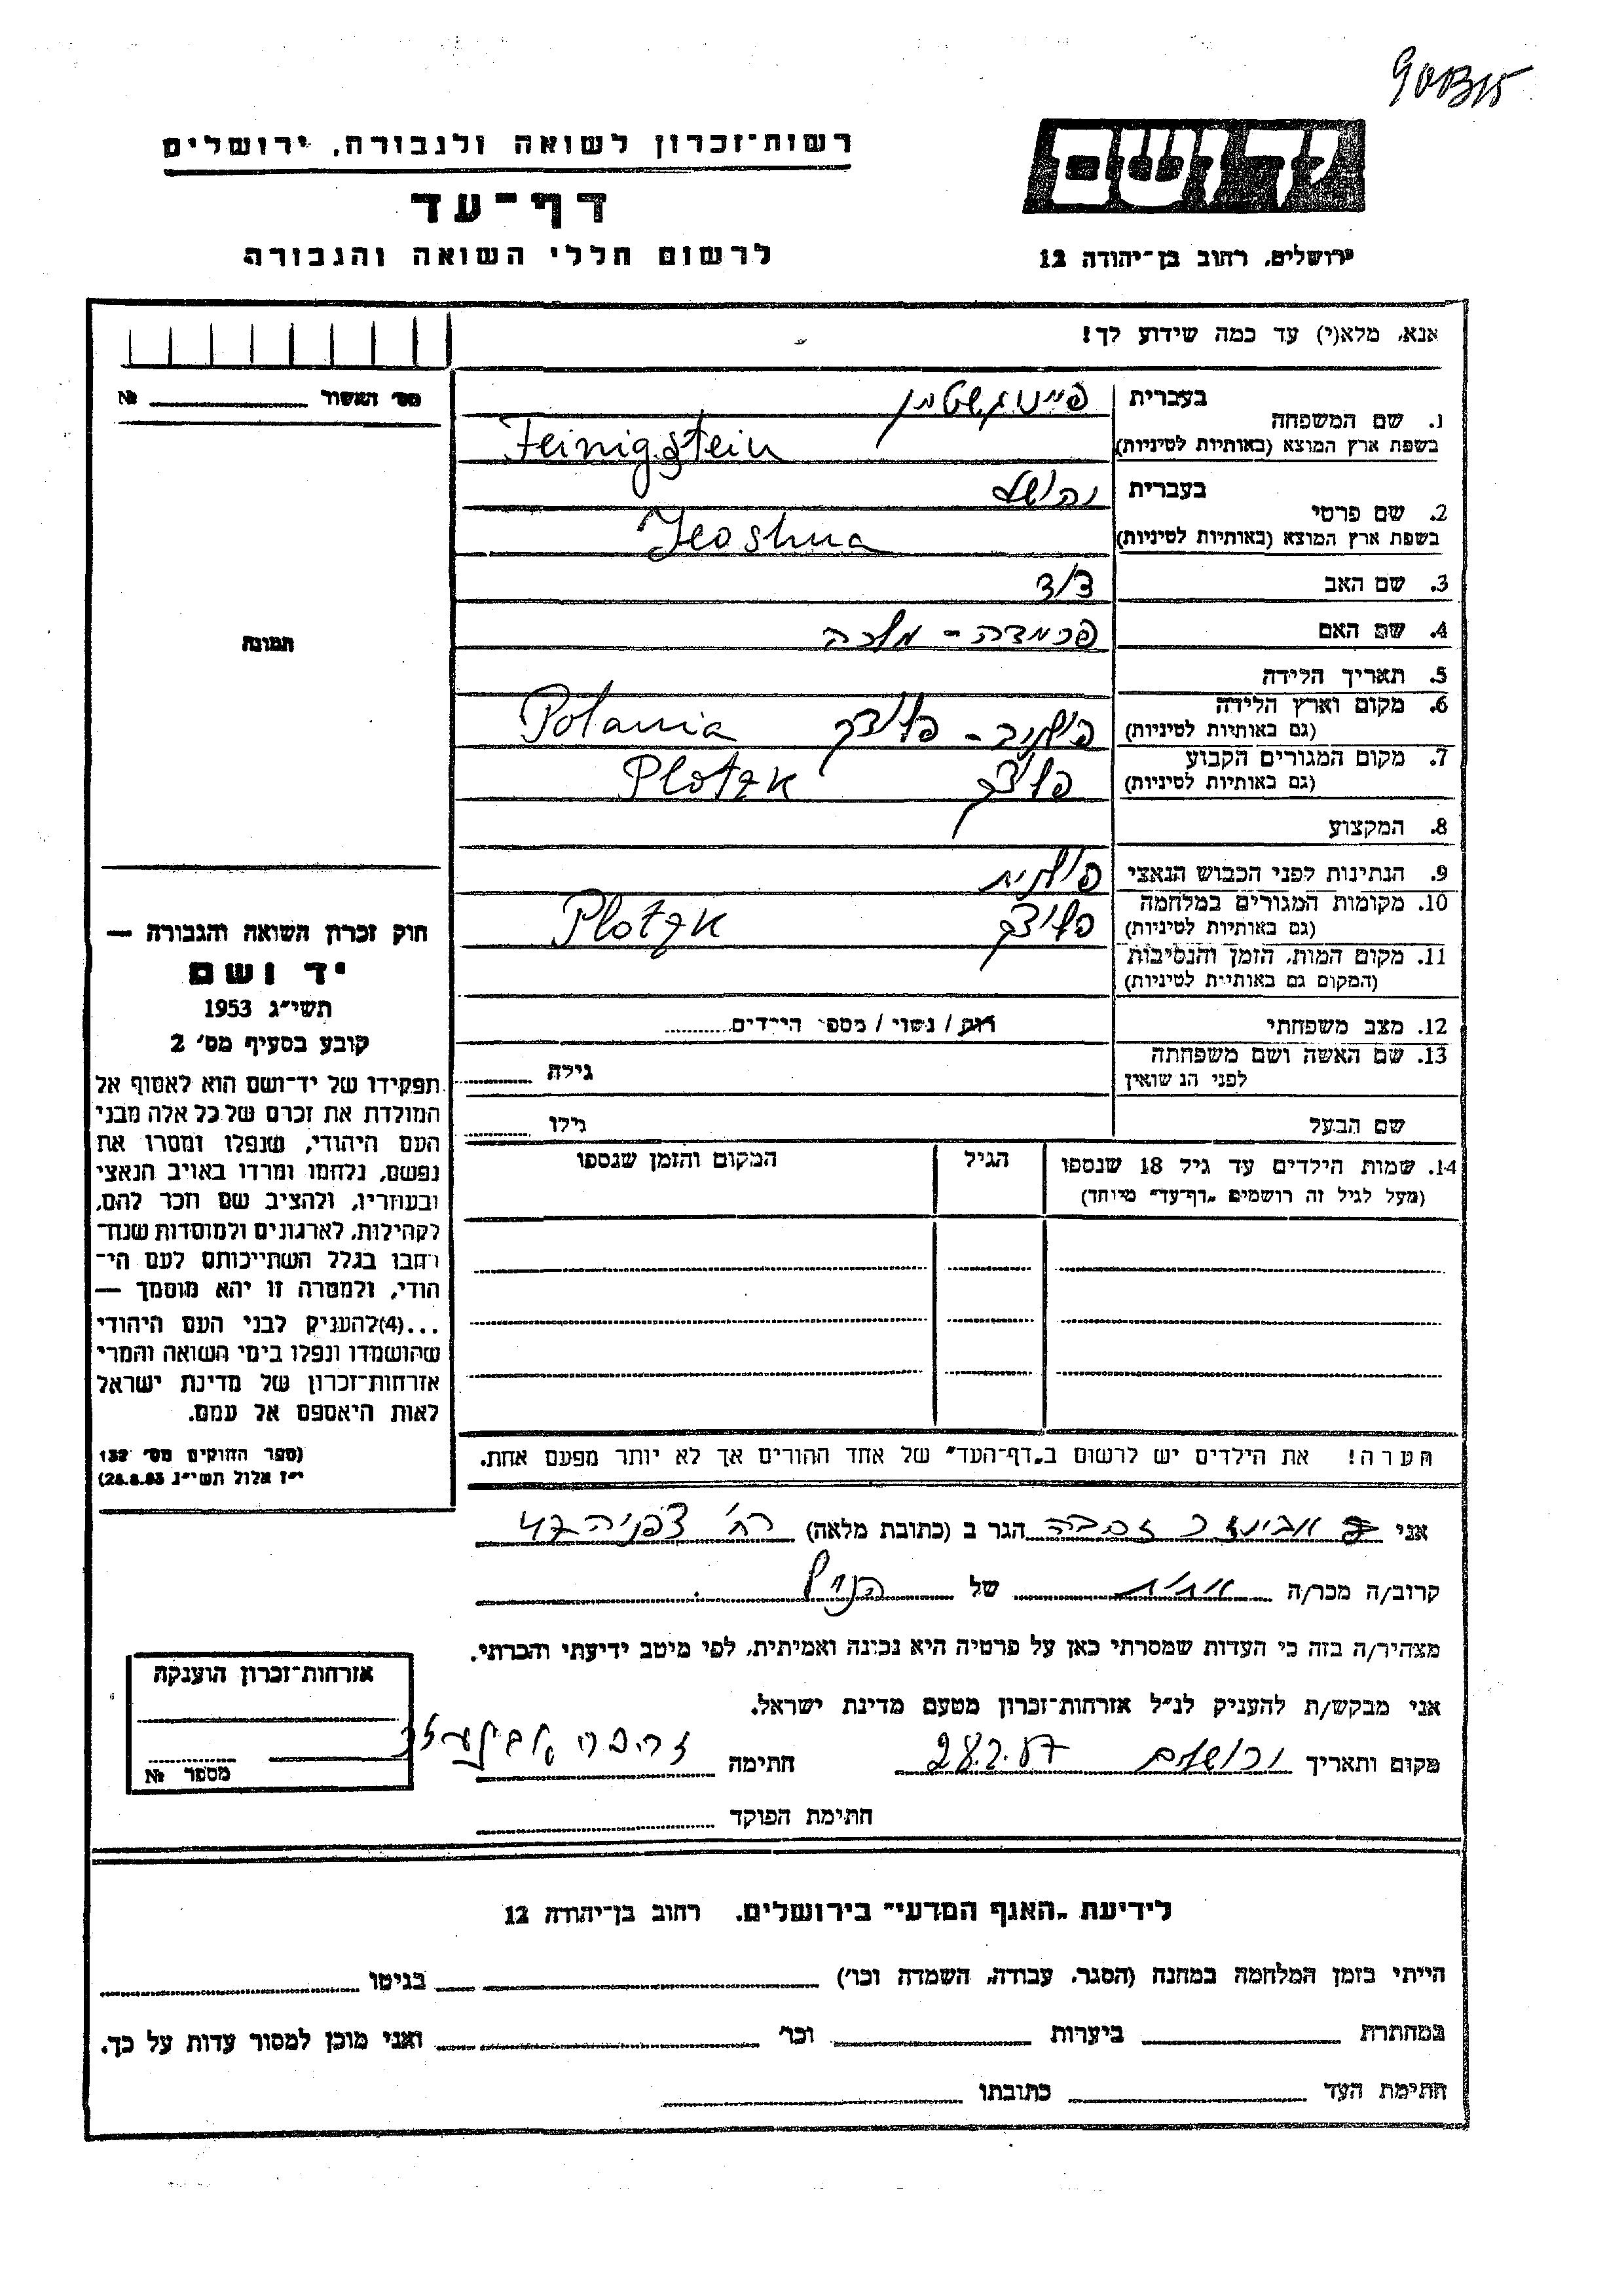 90B15
רשות־זכרון לשואה ולגבורה, ירושלים
דף־עד
לרשום חללי השואה והגבורה
יד ושם
ירושלים, רחוב בן־יהודה 12
אנא, מלא(י) עד כמה שידוע לך!
מס׳ האשור №
תמונה
1. שם המשפחה בעברית
בשפת ארץ המוצא (באותיות לטיניות) Feinigstein
2. שם פרטי בעברית יהושע
בשפת ארץ המוצא (באותיות לטיניות) Jeoshua
3. שם האב
4. שם האם - מלכה
5. תאריך הלידה
6. מקום וארץ הלידה
(גם באותיות לטיניות) פולניה - פלוצק Polania
7. מקום המגורים הקבוע
(גם באותיות לטיניות) פלוצק Plotzk
8. המקצוע
9. הנתינות לפני הכבוש הנאצי פולנית
10. מקומות המגורים במלחמה
(גם באותיות לטיניות) פלוצק Plotzk
11. מקום המות, הזמן והנסיבות
(המקום גם באותיות לטיניות)
12. מצב משפחתי רוק / נשוי / מספר הילדים
13. שם האשה ושם משפחתה
לפני הנשואין גילה
שם הבעל גילו
14. שמות הילדים עד גיל 18 שנספו הגיל המקום והזמן שנספו
(מעל לגיל זה רושמים „דף־עד״ מיוחד)
חוק זכרון השואה והגבורה —
יד ושם
תשי״ג 1953
קובע בסעיף מס׳ 2
תפקידו של יד־ושם הוא לאסוף אל
המולדת את זכרם של כל אלה מבני
העם היהודי, שנפלו ומסרו את
נפשם, נלחמו ומרדו באויב הנאצי
ובעוזריו, ולהציב שם וזכר להם,
לקהילות, לארגונים ולמוסדות שנח־
רחבו בגלל השתייכותם לעם הי־
הודי, ולמטרה זו יהא מוסמך —
...(4)להעניק לבני העם היהודי
שהושמדו ונפלו בימי השואה והמרי
אזרחות־זכרון של מדינת ישראל
לאות היאספם אל עמם.
(ספר החוקים מס׳ 132
י״ז אלול תשי״ג 28.8.53)
הערה! את הילדים יש לרשום ב„דף־העד״ של אחד ההורים אך לא יותר מפעם אחת.
אני זהבה הגר ב (כתובת מלאה) רח׳ צפניה 47
קרוב/ה מכר/ה אחות של הנ״ל
מצהיר/ה בזה כי העדות שמסרתי כאן על פרטיה היא נכונה ואמיתית, לפי מיטב ידיעתי והכרתי.
אני מבקש/ת להעניק לנ״ל אזרחות־זכרון מטעם מדינת ישראל.
מקום ותאריך ירושלים 28.2.87 חתימה זהבה
חתימת הפוקד
אזרחות־זכרון הוענקה
מספר №
לידיעת „האגף המדעי״ בירושלים, רחוב בן־יהודה 12
הייתי בזמן המלחמה במחנה (הסגר, עבודה, השמדה וכו׳) בגיטו
במחתרת ביערות וכו׳ ואני מוכן למסור עדות על כך.
חתימת העד כתובתו